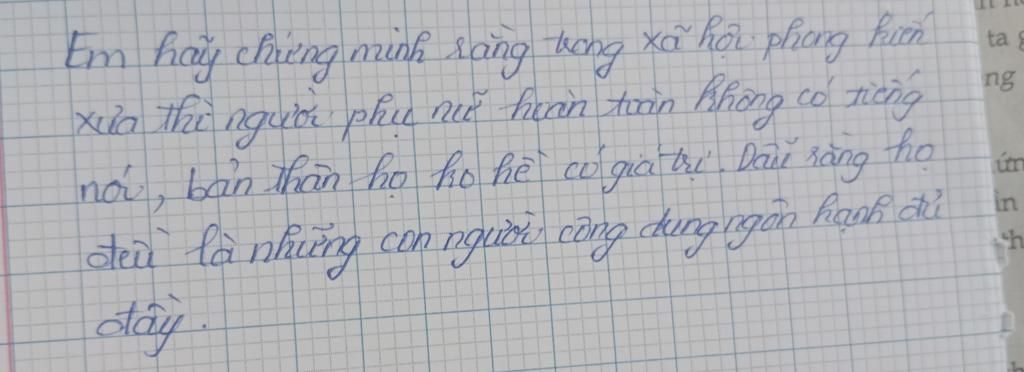 Em hãy chứng minh rằng trong xã hội phong kiến
xưa thì người phụ nữ hoàn toàn không có tiếng
nói, bản thân họ ko hề có giá trị. Dẫu rằng họ
đều là những con người công dung ngôn hạnh đủ
đầy.
ta
ng
úm
in